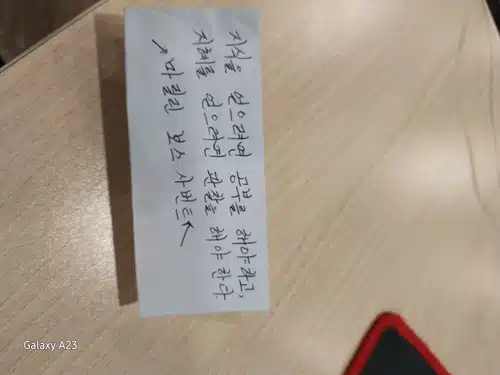 지식을 얻으려면 공부를 해야하고,
지혜를 얻으려면 관찰을 해야 한다
↗마릴린 보스 사번트↖
Galaxy A23